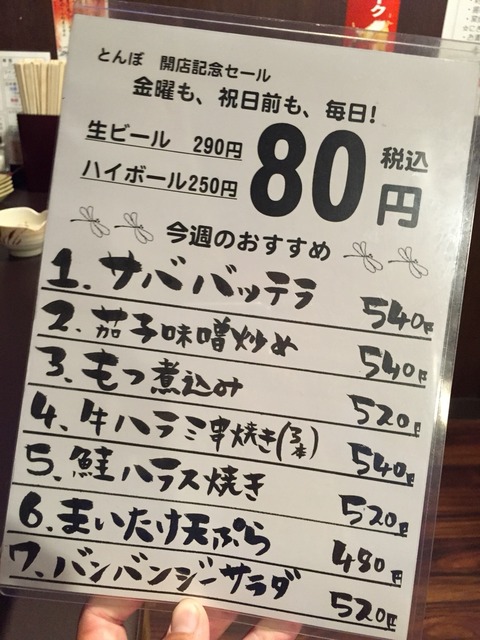 とんぼ 開店記念セール
金曜も、祝日前も、毎日!
生ビール 290円
ハイボール250円
80円
税込
今週のおすすめ
1. サバ バッテラ 540円
2. 茄子味噌炒め 540円
3. もつ煮込み 520円
4. 牛ハラミ串焼き(3本) 540円
5. 鮭ハラス焼き 520円
6. まいたけ天ぷら 480円
7. バンバンジーサラダ 520円
ク